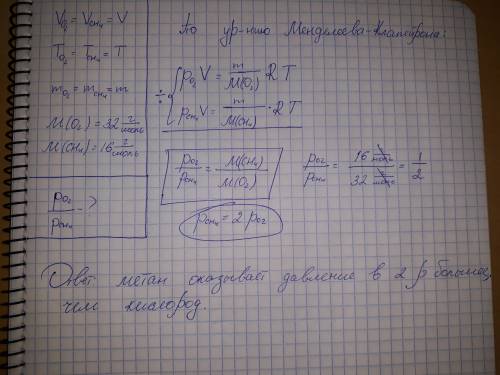 V_O₂ = V_CH₄ = V
T_O₂ = T_CH₄ = T
m_O₂ = m_CH₄ = m
M(O₂) = 32 г/моль
M(CH₄) = 16 г/моль
p_O₂/p_CH₄ - ?
По ур-нию Менделеева-Клапейрона:
÷ { p_O₂ V = m/M(O₂) · R T
p_CH₄ V = m/M(CH₄) · R T
p_O₂/p_CH₄ = M(CH₄)/M(O₂)
p_O₂/p_CH₄ = 16 г/моль / 32 г/моль = 1/2
p_CH₄ = 2 p_O₂
Ответ: метан оказывает давление в 2 р больше,
чем кислород.